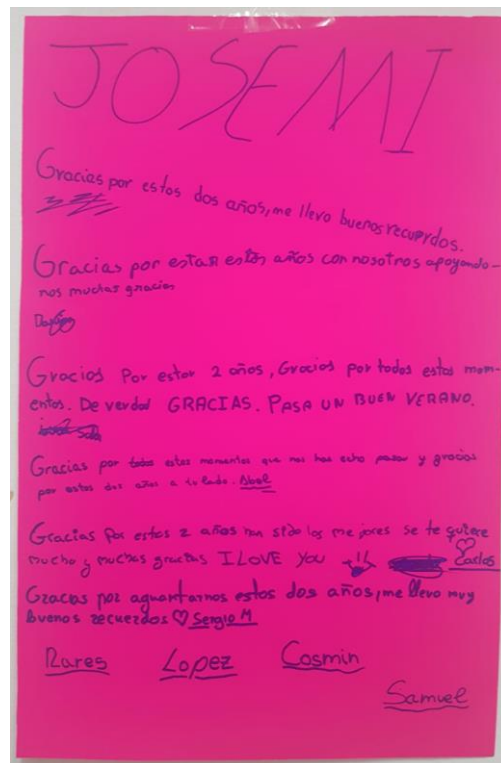 JOSEMI
Gracias por estos dos años, me llevo buenos recuerdos.
Gracias por estar estos años con nosotros apoyando-
nos muchas gracias
Gracias Por estar 2 años, Gracias por todos estos mom-
entos. De verdad GRACIAS. PASA UN BUEN VERANO.
Gracias por todos estos momentos que nos has echo pasar y gracias
por estos dos años a tu lado. Abel
Gracias por estos 2 años han sido los mejores se te quiere
mucho y muchas gracias I LOVE YOU Carlos
Gracias por aguantarnos estos dos años, me llevo muy
buenos recuerdos ♡ Sergio M
Rares Lopez Cosmin
Samuel